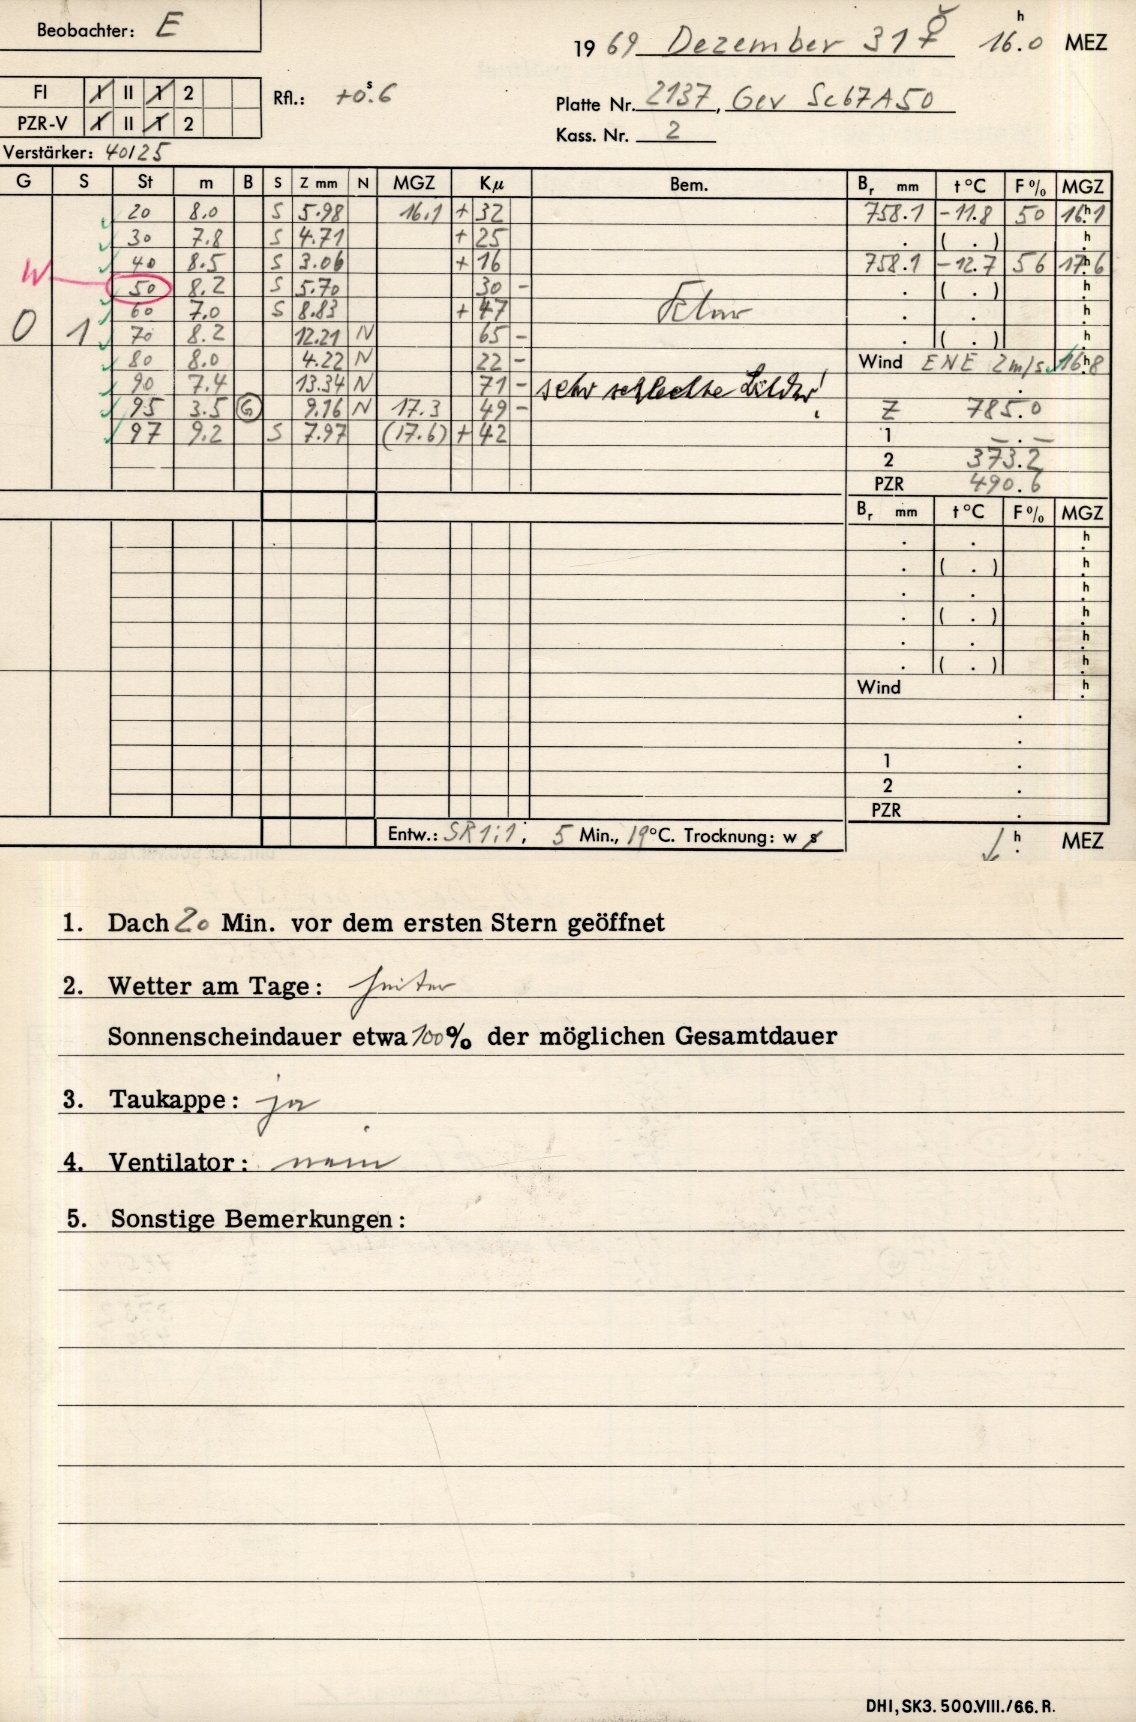 Beobachter: E
19 69 Dezember 31 ☿ 16.0 h MEZ
FI I II 1 2
Rfl.: +0.6 s
Platte Nr. 2137, Gev Sc67A50
PZR-V I II 1 2
Kass. Nr. 2
Verstärker: 40/25
G S St m B S Z mm N MGZ Kμ Bem. Br mm t °C F % MGZ
20 8.0 S 5.98 16.1 + 32 758.1 -11.8 50 16.1 h
30 7.8 S 4.71 + 25 . ( . ) h
40 8.5 S 3.06 + 16 758.1 -12.7 56 17.6 h
W 50 8.2 S 5.70 30 - . ( . ) h
0 1 60 7.0 S 8.83 + 47 . . h
70 8.2 12.21 N 65 - ( . ) h
80 8.0 4.22 N 22 - Wind ENE 2 m/s 16.8 h
90 7.4 13.34 N 71 - sehr schlechte Bilder!
95 3.5 G 9.16 N 17.3 49 - Z 785.0
97 9.2 S 7.97 (17.6) + 42 1 – . –
2 373.2
PZR 490.6
Br mm t °C F % MGZ
. . h
. ( . ) h
. . h
. ( . ) h
. . h
. ( . ) h
Wind h
.
.
1 .
2 .
PZR .
Entw.: SR 1:1; 5 Min., 19 °C. Trocknung: w s
h MEZ
1. Dach 20 Min. vor dem ersten Stern geöffnet
2. Wetter am Tage: heiter
Sonnenscheindauer etwa 100 % der möglichen Gesamtdauer
3. Taukappe: ja
4. Ventilator: nein
5. Sonstige Bemerkungen:
DHI, SK3. 500.VIII./66. R.